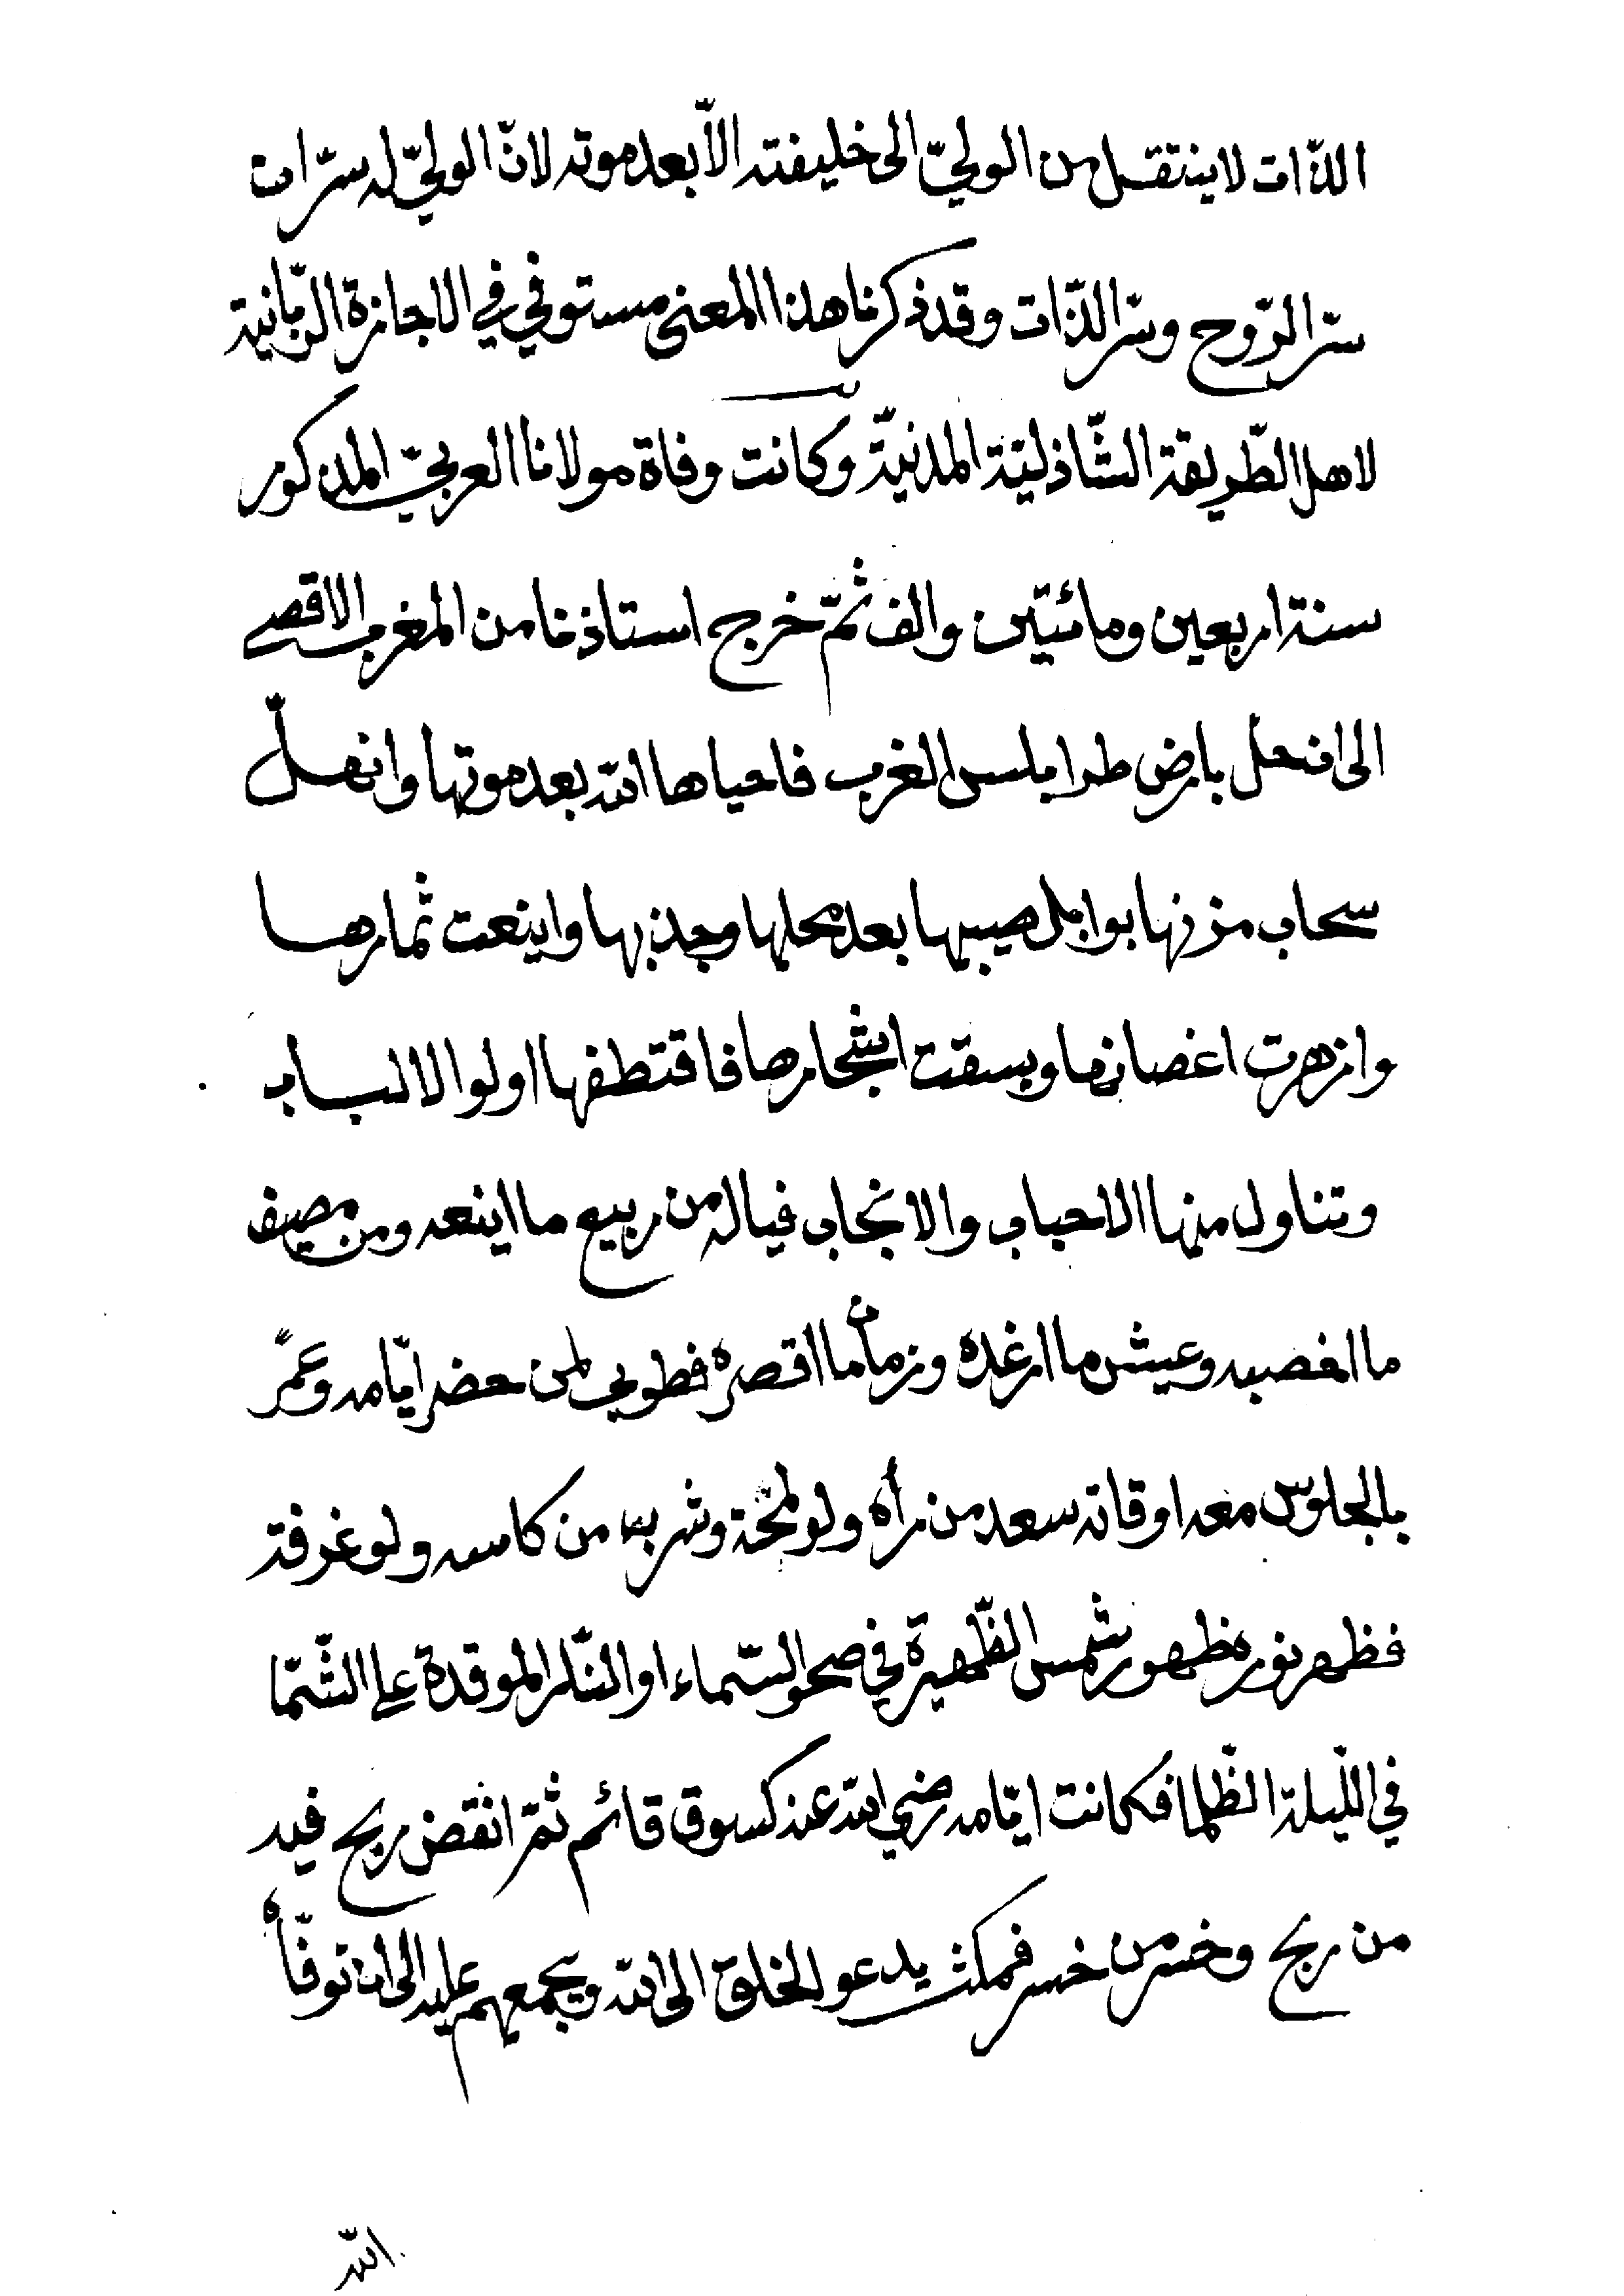 الذّات لا ينتقل من الوليّ الى خليفته الّا بعد موته لانّ الوليّ له سرّان
سرّ الرّوح وسرّ الذّات وقد ذكرنا هذا المعنى مستوفي في الاجازة الرّبّانية
لاهل الطّريقة الشّاذليّة المدنيّة وكانت وفاة مولانا العربيّ المذكور
سنة اربعين ومائتين والف ثمّ خرج استاذنا من المغرب الاقصى
الى ان حلّ بارض طرابلس الغرب فاحياها الله بعد موتها وانهلّ
سحاب مزنها بوابل صيبها بعد محلها وجذبها واينعت ثمارها
وازهرت اغصانها وبسقت اشجارها فاقتطفها اولوا الالباب
وتناول منها الاحباب والانجاب فياله من ربيع ما اينعه ومن مصيف
ما اخصبه وعيش ما ارغده وزمان ما اقصره فطوبي لمن حضر ايّامه وعمّر
بالجلوس معه اوقاته سعد من رأه ولو لمحة وشرب من كاسه ولو غرفة
فظهر نوره ظهور شمس الظّهيرة في صحو السّماء او النّار الموقدة على الشّمّا
في اللّيلة الظّلما فكانت ايّامه رضي الله عنه كسوق قائم ثمّ انفض ربح فيه
من ربح وخسر من خسر فمكث يدعو الخلق الى الله ويجمعهم عليه الى ان توفّاه
الله